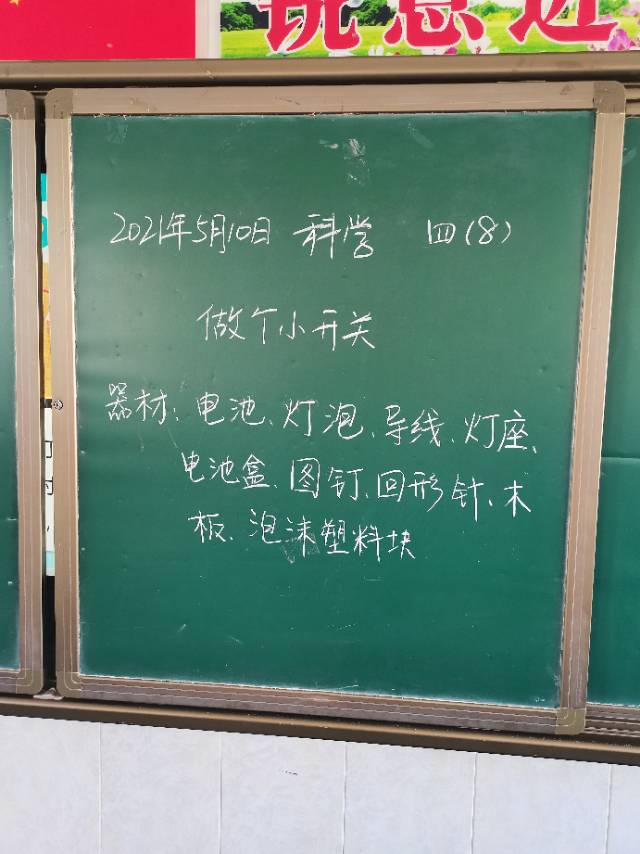 锐意进
2021年5月10日 科学 四(8)
做个小开关
器材:电池、灯泡、导线、灯座、
电池盒、图钉、回形针、木
板、泡沫塑料块